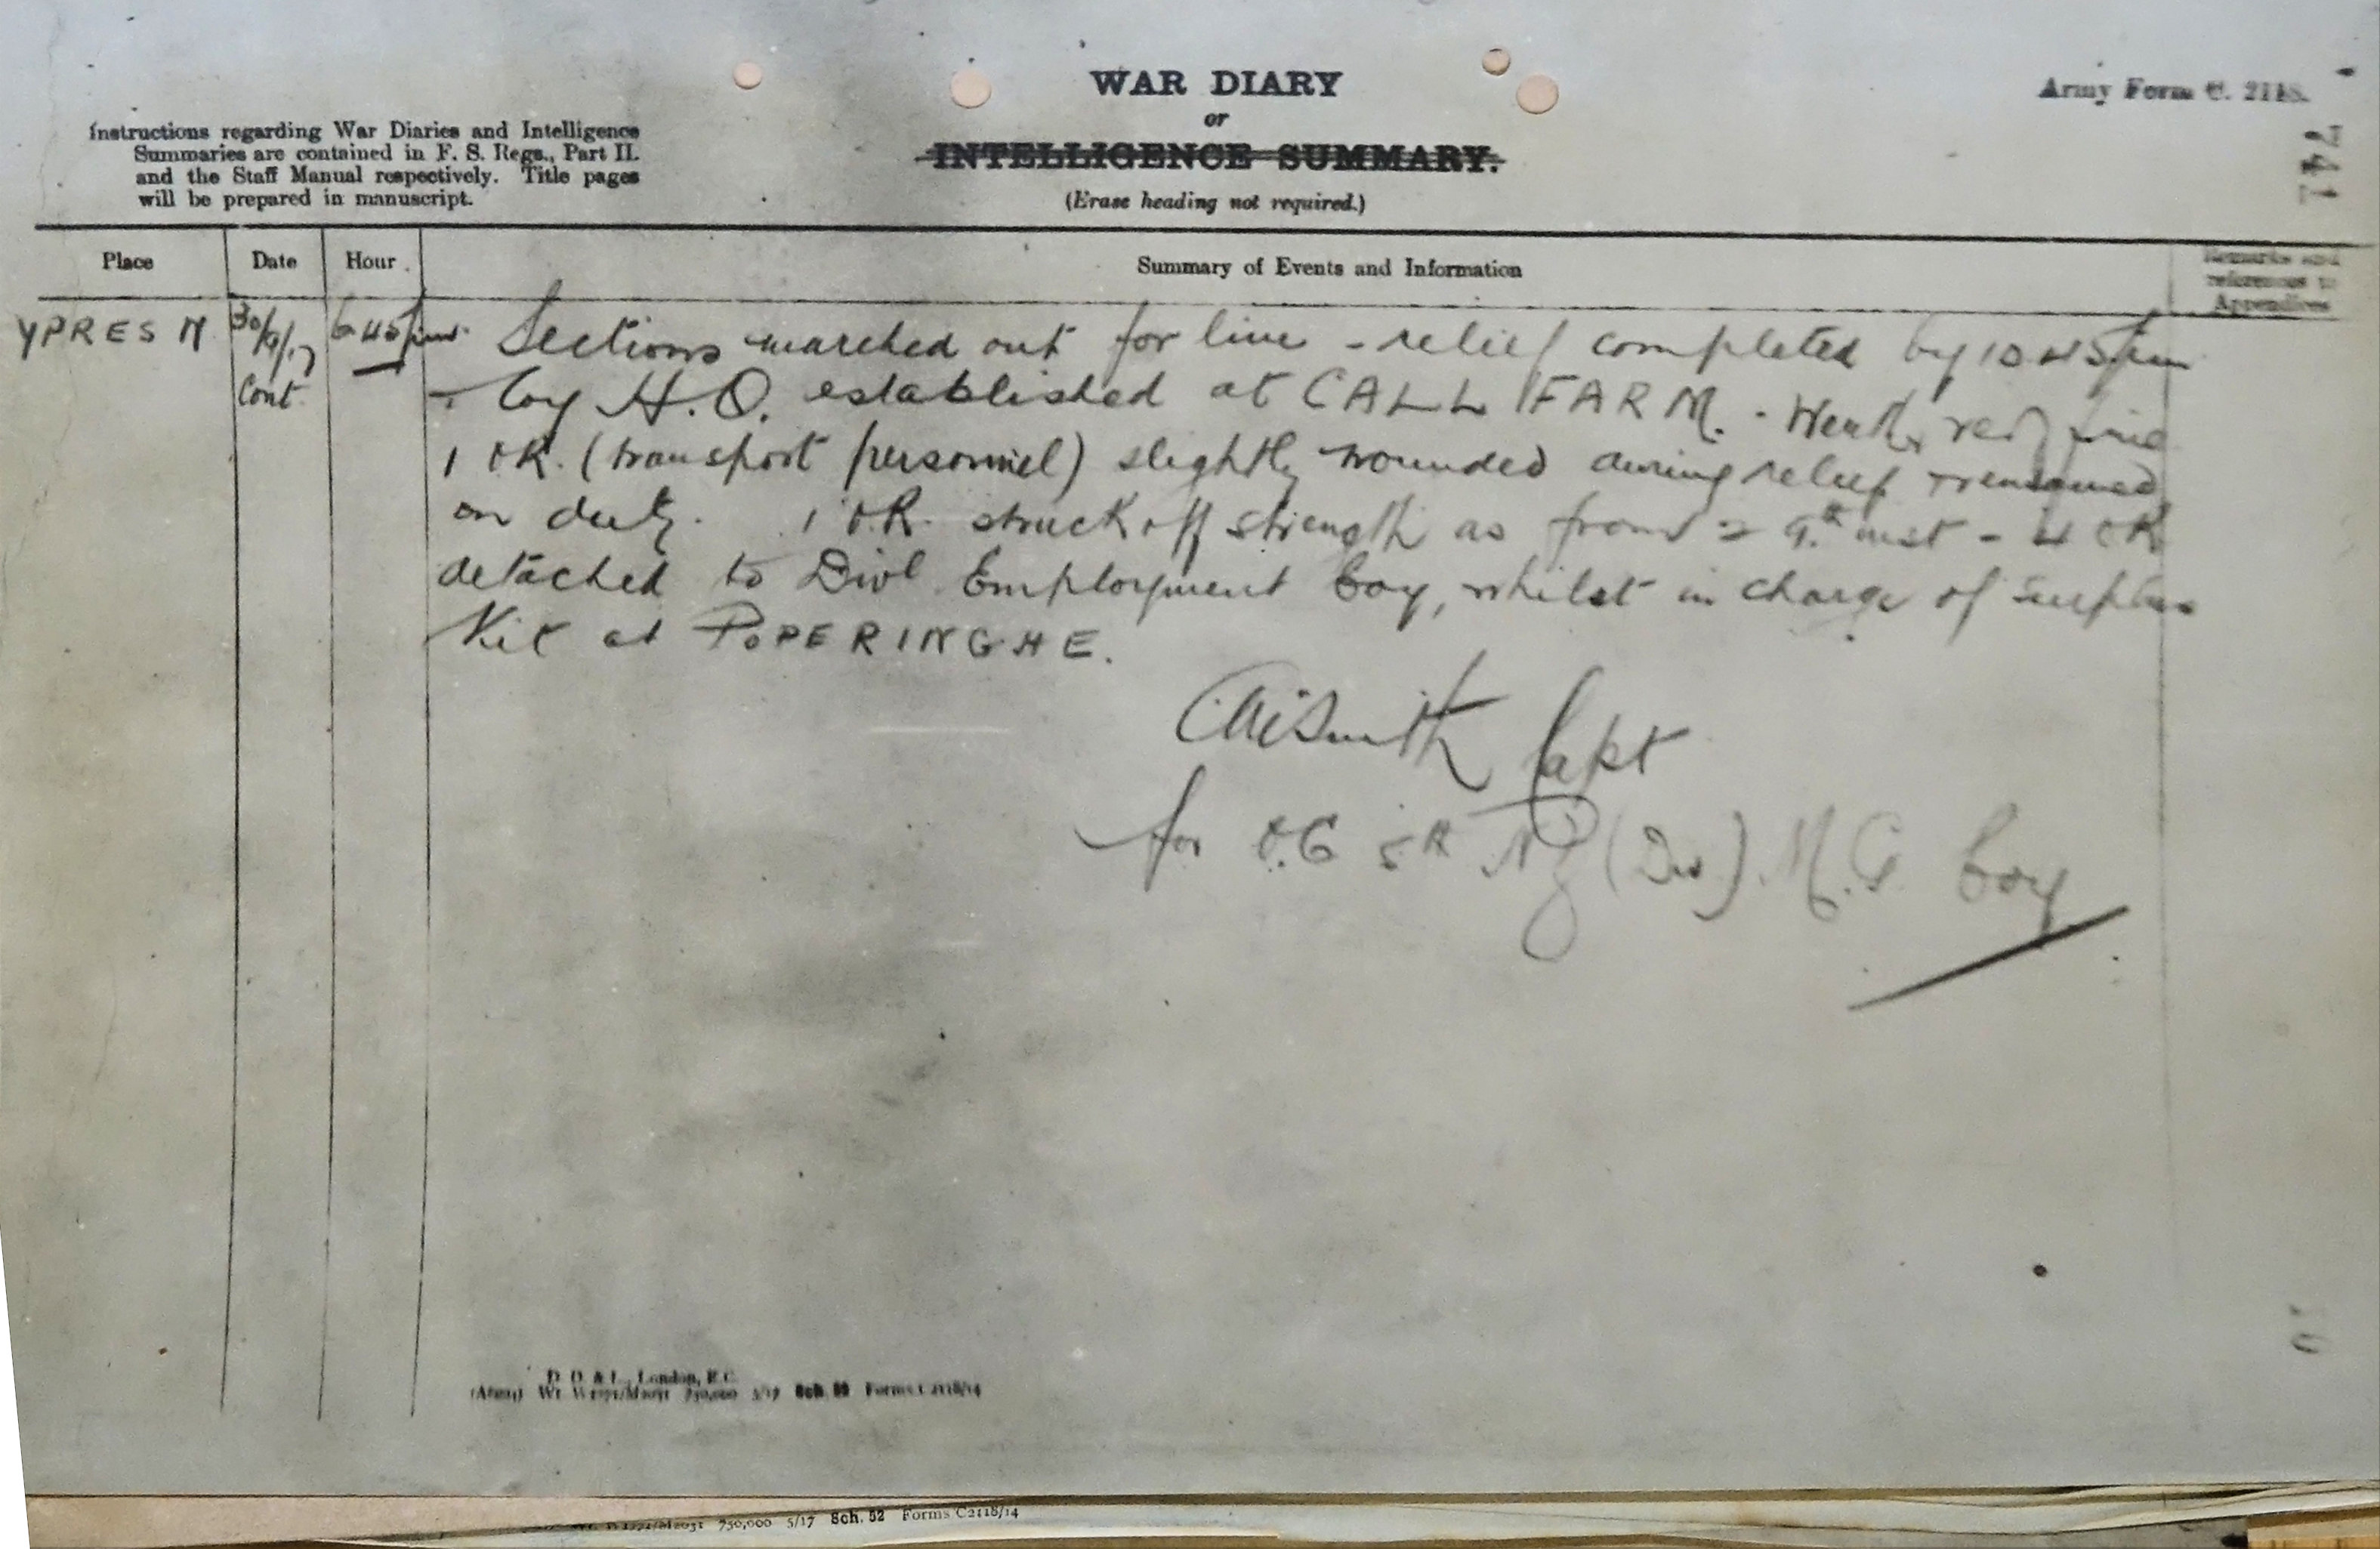 WAR DIARY
or
INTELLIGENCE SUMMARY.
(Erase heading not required.)
Army Form C. 2118.
Instructions regarding War Diaries and Intelligence
Summaries are contained in F. S. Regs., Part II.
and the Staff Manual respectively. Title pages
will be prepared in manuscript.
Place Date Hour Summary of Events and Information Remarks and
references to
Appendices
YPRES N 30/9/17 6 45 pm Sections marched out for line - relief completed by 10 45 pm
Cont. - Coy H.Q. established at CALL FARM. - Weather very fine
1 OR. (transport personnel) slightly wounded during relief remained
on duty. 1 O.R. struck off strength as from 29th inst - 4 OR
detached to Divl Employment Coy, whilst in charge of surplus
Kit at POPERINGHE.
Smith Capt
for O.C 5th NZ (Div) M.G Coy
D. D. & L., London, E.C.
Sch. 52 Forms C2118/14
750,000 5/17 Sch. 52 Forms C2118/14